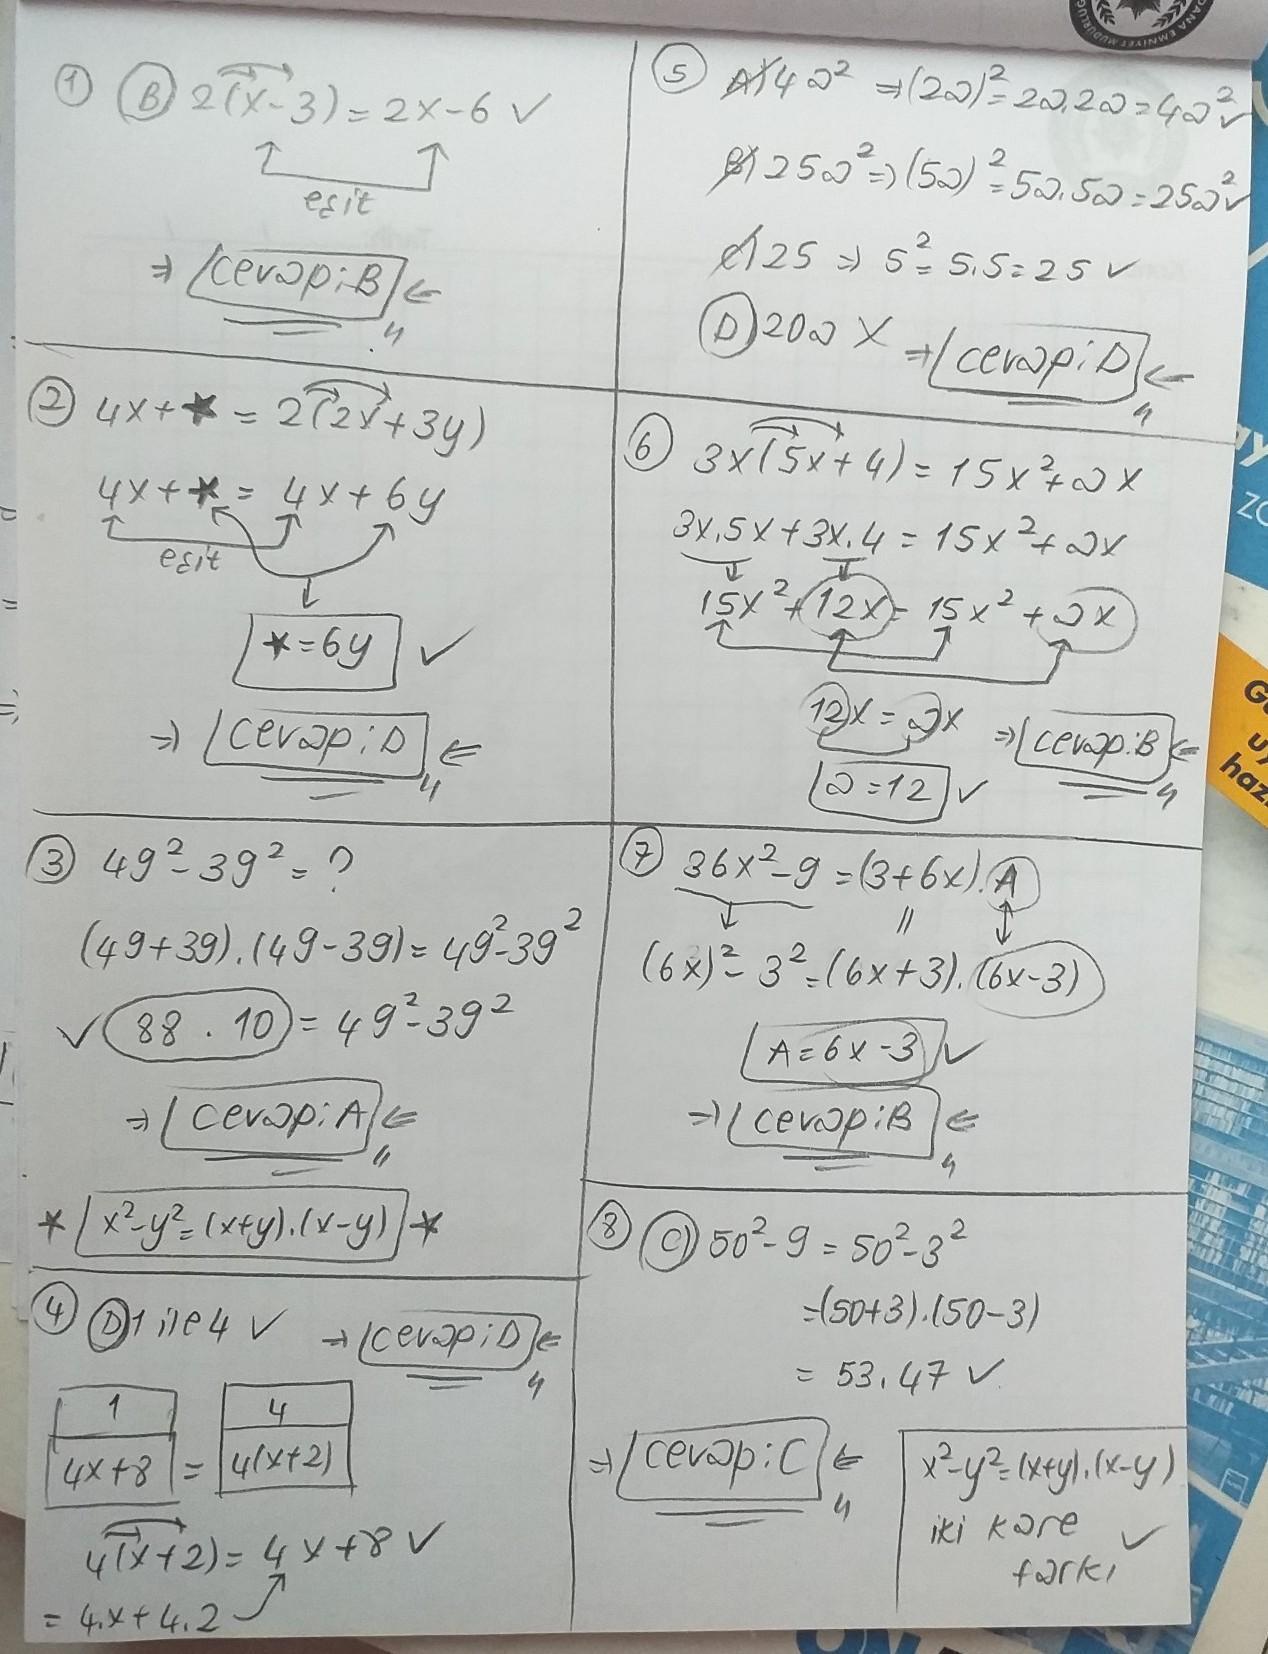 DANA EMNİYET MÜDÜRLÜĞ
① Ⓑ 2(x-3) = 2x-6 ✓
eşit
⇒ cevap: B ⇐
② 4x+★ = 2(2x+3y)
4x+★ = 4x+6y
eşit
★=6y ✓
⇒ cevap: D ⇐
③ 49²-39² = ?
(49+39).(49-39) = 49²-39²
✓ 88 . 10 = 49²-39²
⇒ cevap: A ⇐
★ x²-y² = (x+y).(x-y) ★
④ D) 1 ile 4 ✓ ⇒ cevap: D ⇐
1 4
4x+8 = 4(x+2)
4(x+2) = 4x+8 ✓
= 4.x+4.2
⑤ A) 4a² ⇒ (2a)² = 2a.2a = 4a² ✓
B) 25a² ⇒ (5a)² = 5a.5a = 25a² ✓
C) 25 ⇒ 5² = 5.5 = 25 ✓
D) 20a X ⇒ cevap: D ⇐
⑥ 3x(5x+4) = 15x²+ax
3x.5x+3x.4 = 15x²+ax
15x²+12x = 15x²+ax
12x = ax ⇒ cevap: B ⇐
a=12 ✓
⑦ 36x²-9 = (3+6x).A
(6x)²-3² = (6x+3).(6x-3)
A=6x-3 ✓
⇒ cevap: B ⇐
⑧ C) 50²-9 = 50²-3²
=(50+3).(50-3)
= 53.47 ✓
⇒ cevap: C ⇐
x²-y² = (x+y).(x-y)
iki kare ✓
farkı
haz
ON